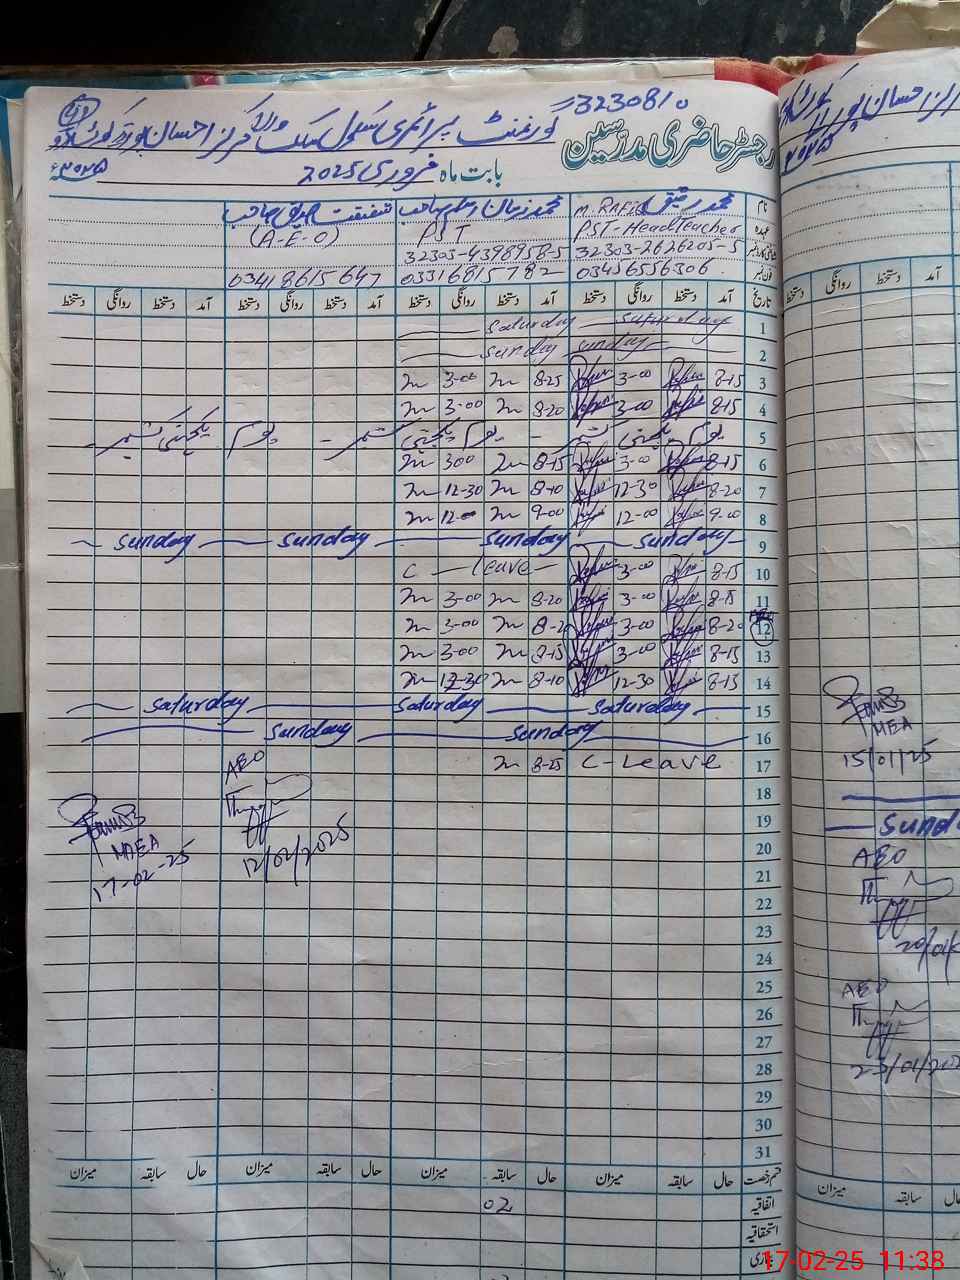 3230810
گورنمنٹ پرائمری سکول مرکز احسان پور
رجسٹر حاضری مدرسین
بابت ماہ فروری 2025
نام محمد رفیق M. Rafiq محمد زمان اسلم صاحب شفقت صدیق صاحب
عہدہ PST-HeadTeacher PST (A-E-O)
32303-2626205-5 32303-4398958-5
فون نمبر 03456556306 03316815782 03418615647
تاریخ آمد دستخط روانگی دستخط آمد دستخط روانگی دستخط آمد دستخط روانگی دستخط آمد دستخط روانگی دستخط
1 Saturday Saturday
2 Sunday Sunday
3 8-15 3-00 8-25 3-00
4 8-15 3-00 8-20 3-00
5 یوم یکجہتی کشمیر یوم یکجہتی کشمیر یوم یکجہتی کشمیر
6 8-15 3-00 8-15 3-00
7 8-20 12-30 8-10 12-30
8 9-00 12-00 9-00 12-00
9 Sunday Sunday Sunday Sunday
10 8-15 3-00 C - leave
11 8-15 3-00 8-20 3-00
12 8-20 3-00 8-20 3-00
13 8-15 3-00 8-15 3-00
14 8-15 12-30 8-10 12-30
15 Saturday Saturday Saturday
16 Sunday Sunday
17 C-Leave 8-25
18
19
20
21
22
23
24
25
26
27
28
29
30
31
AEO
12/02/2025
MEA
17-02-25
قسم رخصت حال سابقہ میزان حال سابقہ میزان حال سابقہ میزان حال سابقہ میزان
اتفاقیہ 02
استحقاقیہ
بیماری
دستخط روانگی آمد
MEA
15/01/25
Sunda
AEO
20/01/2
AEO
23/01/202
میزان سابقہ
17-02-25 11:38